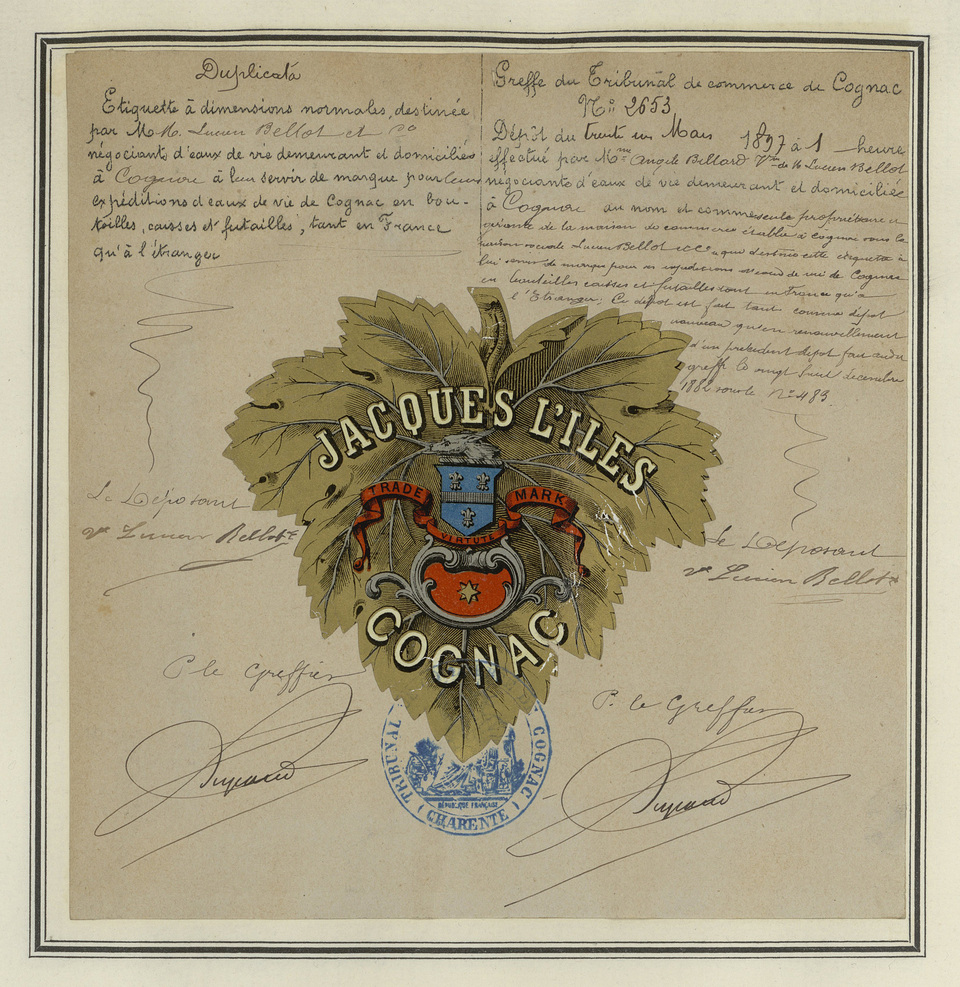 Duplicata
Etiquette à dimensions normales, destinée
par M.M. Lucien Bellot et Cº
négociants d'eaux de vie demeurant et domiciliés
à Cognac à leur servir de marque pour leurs
expéditions d'eaux de vie de Cognac en bou-
teilles, caisses et futailles, tant en France
qu'à l'étranger
Le Déposant
vve Lucien Bellot
P. le Greffier
Greffe du Tribunal de commerce de Cognac
Nº 2653
Dépôt du trente un Mars 1897 à 1 heure
effectué par Mme Angèle Billard Vve de M Lucien Bellot
négociante d'eaux de vie demeurant et domiciliée
à Cognac au nom et comme seule propriétaire et
gérante de la maison de commerce établie à Cognac sous la
raison sociale Lucien Bellot & Cº à qui destine cette étiquette à
lui servir de marque pour ses expéditions d'eaux de vie de Cognac
en bouteilles caisses et futailles tant en France qu'à
l'Etranger. Ce dépôt est fait tant comme dépôt
nouveau qu'en renouvellement
d'un précédent dépôt fait au dit
greffe le vingt huit décembre
1882 sous le Nº 483
Le Déposant
vve Lucien Bellot
P. le Greffier
JACQUES L'ILES
TRADE MARK
VIRTUTE
COGNAC
TRIBUNAL
COGNAC
RÉPUBLIQUE FRANÇAISE
(CHARENTE)